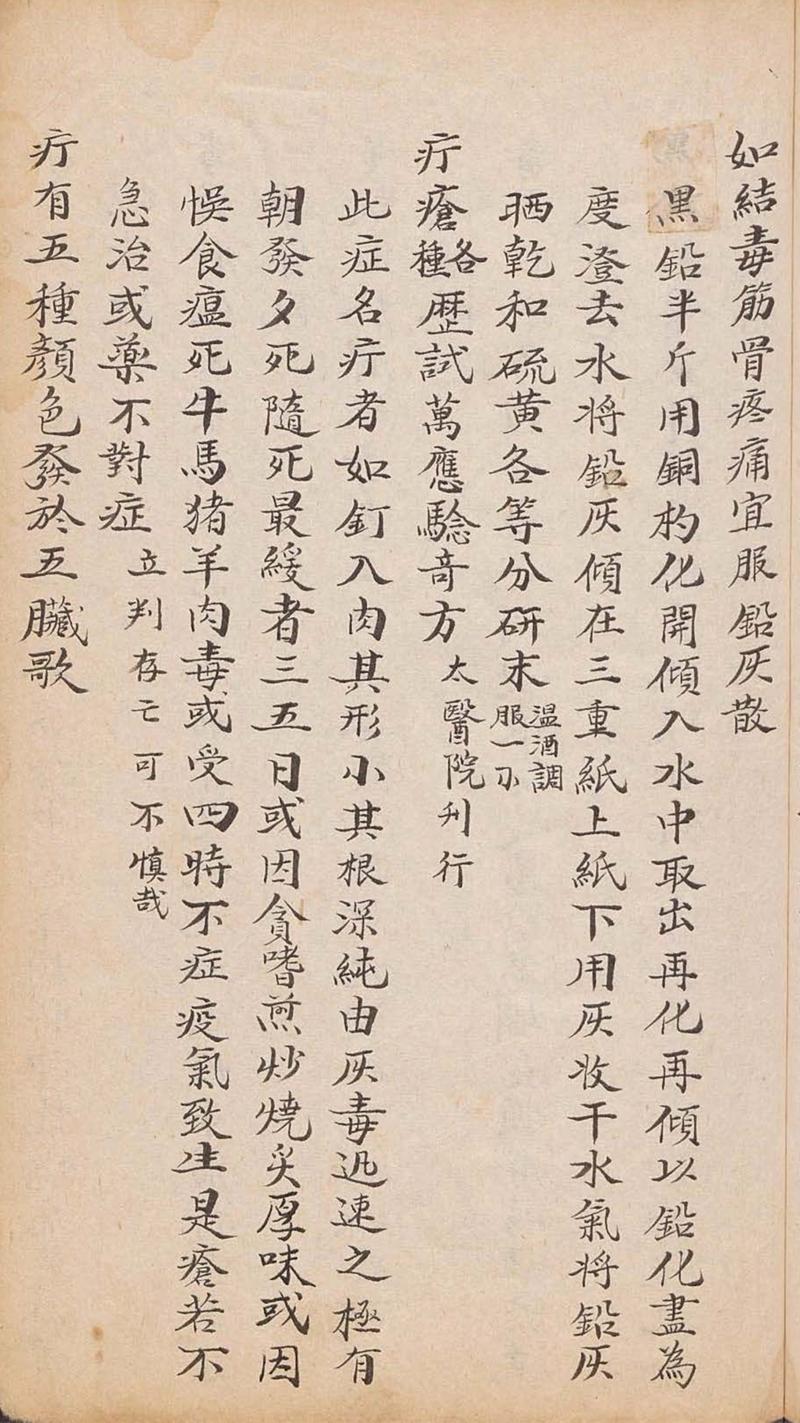 如結毒筋骨疼痛宜服鉛灰散
黑鉛半斤用銅杓化開傾入水中取出再化再傾以鉛化盡為
度澄去水将鉛灰傾在三重紙上紙下用灰收干水氣将鉛灰
晒乾和硫黄各等分研末温酒調服一
疔瘡各種歷試萬應驗竒方太醫院刋行
此症名疔者如釘入肉其形小其根深純由灰毒迅速之極有
朝發夕死隨死最緩者三五日或因貪嗜煎炒燒炙厚味或因
悞食瘟死牛馬猪羊肉毒或受四時不症疫氣致生是瘡若不
急治或藥不對症立判存亡可不慎哉
疔有五種顏色發於五臟歌